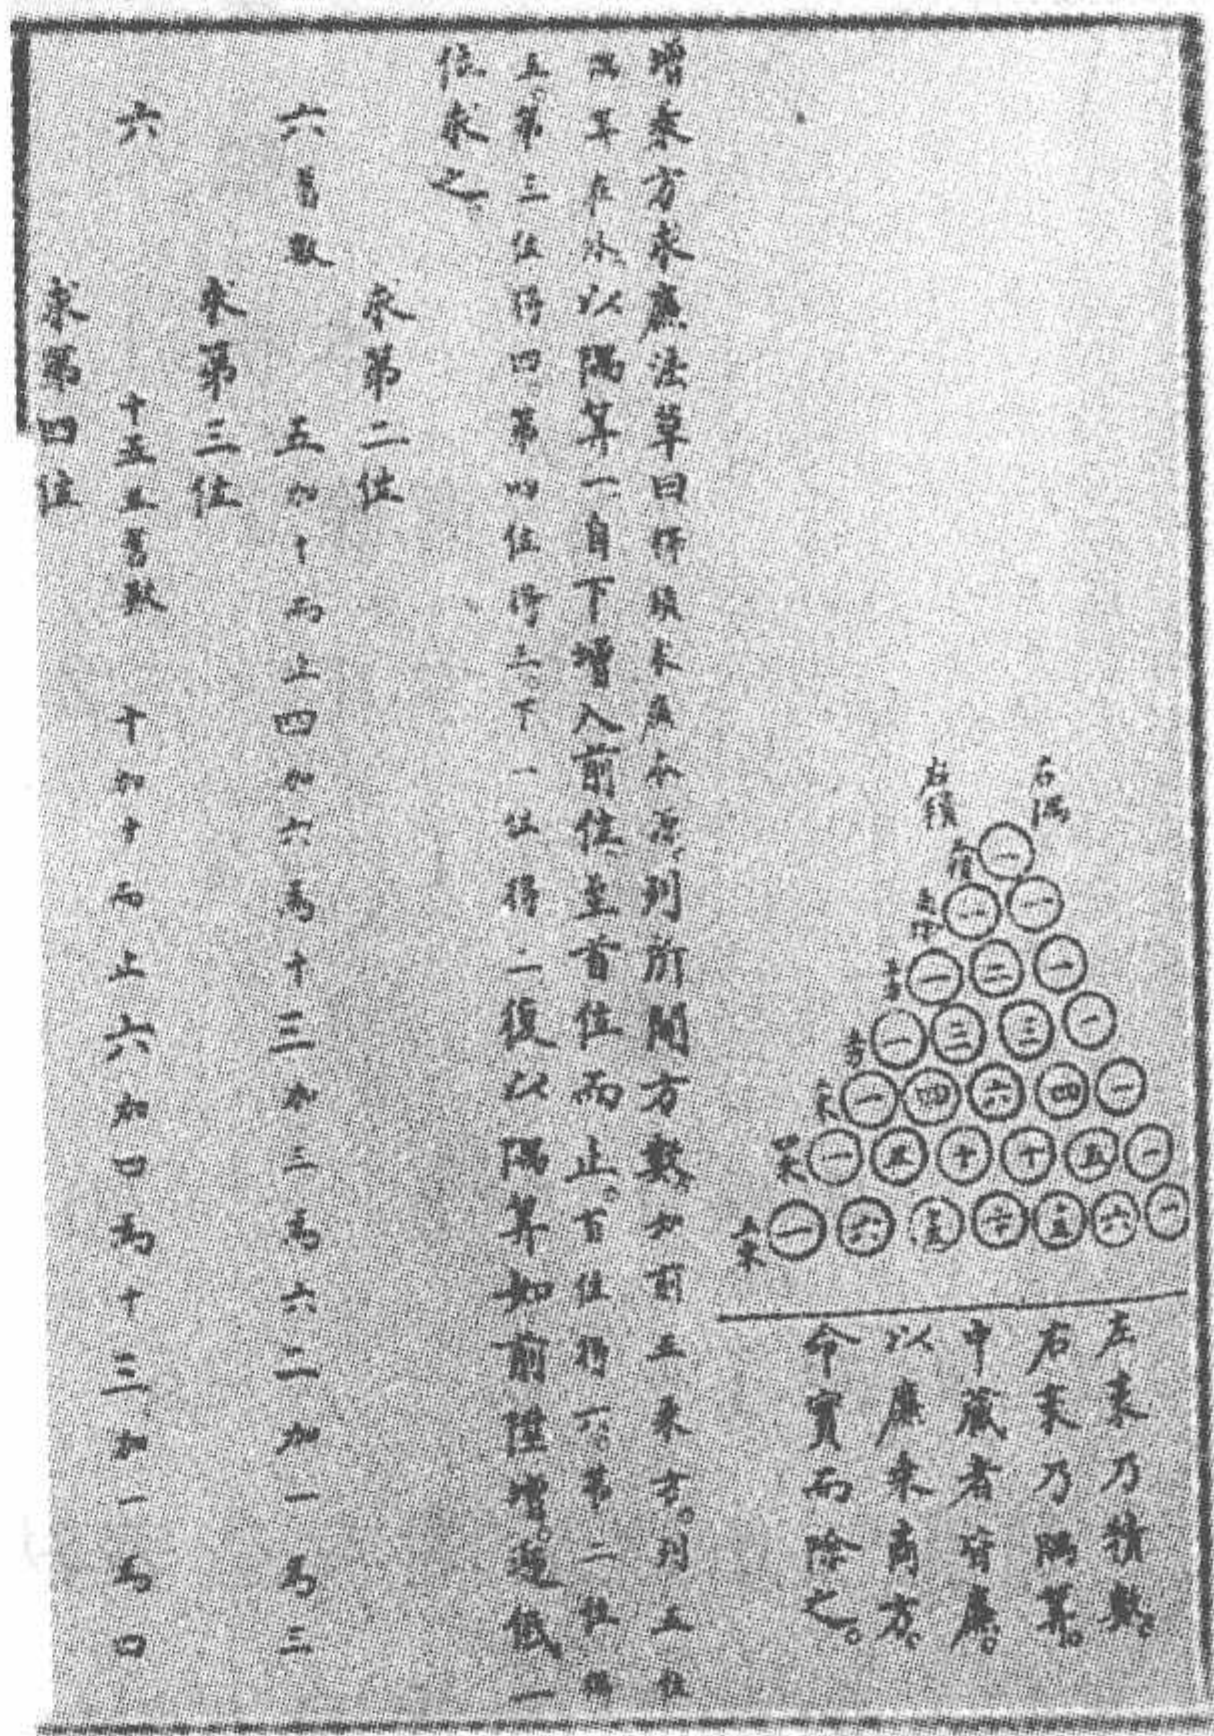 左積
右隅
本積 一
商除 一 一
平方 一 二 一
立方 一 三 三 一
三乘 一 四 六 四 一
四乘 一 五 十 十 五 一
五乘 一 六 十五 二十 十五 六 一
左袤乃積數。
右袤乃隅算。
中藏者皆廉。
以廉乘商方。
命實而除之。
增乘方求廉法草曰釋鎖求廉本源、列所開方數。如前五乘方。列五位
隅算在外、以隅算一、自下增入前位、至首位而止。首位得六。第二位得
五。第三位得四。第四位得三。下一位得二。復以隅算如前陞增。遞低一
位求之。
求第二位
六舊數 五加十而止 四加六為十 三加三為六 二加一為三
求第三位
六 十五並舊數 十加十而止 六加四為十 三加一為四
求第四位